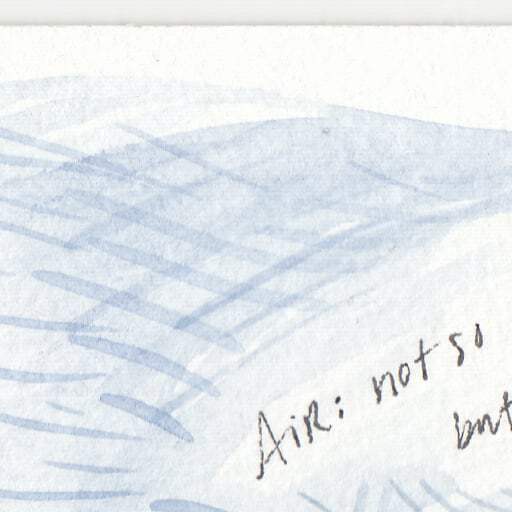 AiR: not so
but